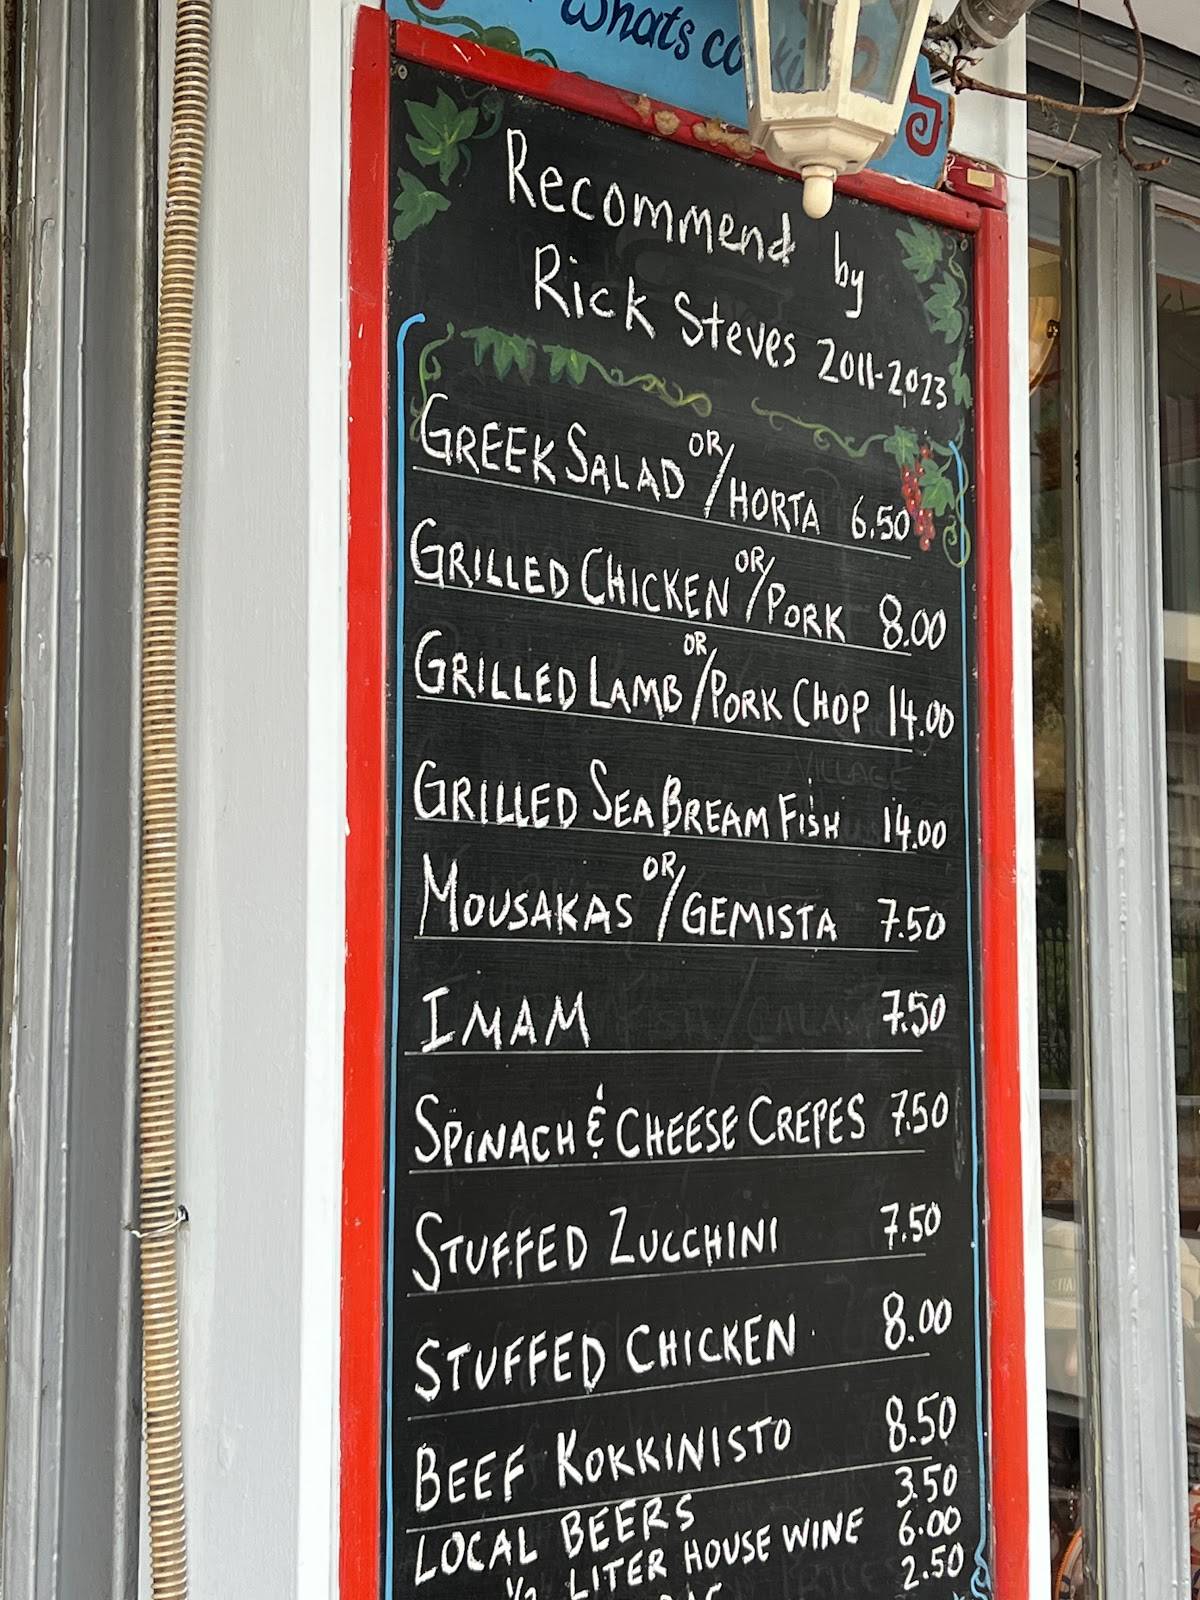 Whats cooking
Recommend by
Rick Steves 2011-2023
GREEK SALAD OR/HORTA 6.50
GRILLED CHICKEN OR/PORK 8.00
GRILLED LAMB OR/PORK CHOP 14.00
GRILLED SEA BREAM FISH 14.00
MOUSAKAS OR/GEMISTA 7.50
IMAM 7.50
SPINACH & CHEESE CREPES 7.50
STUFFED ZUCCHINI 7.50
STUFFED CHICKEN 8.00
BEEF KOKKINISTO 8.50
LOCAL BEERS 3.50
1/2 LITER HOUSE WINE 6.00
2.50